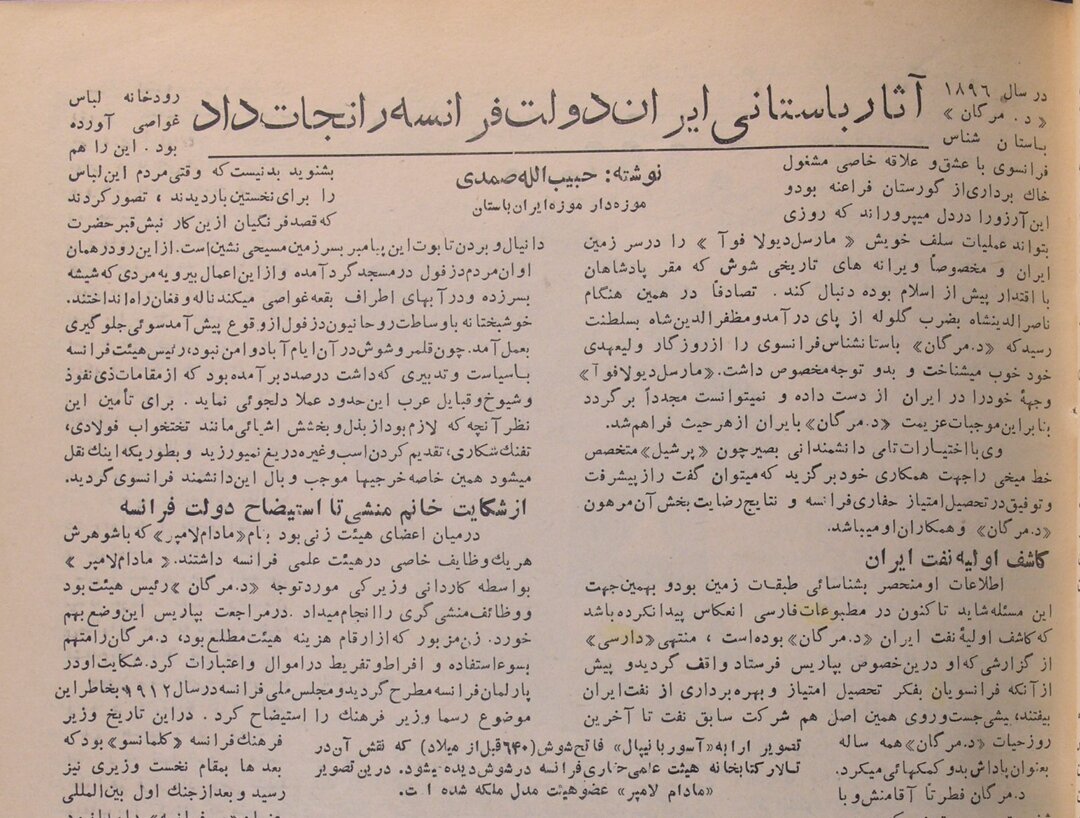 آثار باستانی ایران دولت فرانسه را نجات داد
نوشته: حبیب الله صمدی
موزه دار موزه ایران باستان
در سال ۱۸۹۶
«د. مرگان»
باستان شناس
فرانسوی با عشق و علاقه خاصی مشغول
خاك برداری از گورستان فراعنه بود و
این آرزو را در دل میپروراند که روزی
بتواند عملیات سلف خویش « مارسل دیولافوآ » را در سر زمین
ایران و مخصوصاً ویرانه های تاریخی شوش که مقر پادشاهان
با اقتدار پیش از اسلام بوده دنبال کند . تصادفاً در همین هنگام
ناصرالدینشاه بضرب گلوله از پای در آمد و مظفرالدین شاه بسلطنت
رسید که «د. مرگان» باستانشناس فرانسوی را از روزگار ولیعهدی
خود خوب میشناخت و بدو توجه مخصوص داشت. «مارسل دیولافوآ»
وجههٔ خود را در ایران از دست داده و نمیتوانست مجدداً برگردد
بنابر این موجبات عزیمت «د. مرگان» بایران از هر حیث فراهم شد.
وی با اختیارات تامی دانشمندانی بصیر چون «پرشیل» متخصص
خط میخی را جهت همکاری خود برگزید که میتوان گفت راز پیشرفت
و توفیق در تحصیل امتیاز حفاری فرانسه و نتایج رضایت بخش آن مرهون
«د. مرگان» و همکاران او میباشد.
کاشف اولیه نفت ایران
اطلاعات او منحصر بشناسائی طبقات زمین بود و بهمین جهت
این مسئله شاید تاکنون در مطبوعات فارسی انعکاس پیدا نکرده باشد
که کاشف اولیهٔ نفت ایران «د. مرگان» بوده است ، منتهی «دارسی»
از گزارشی که او در ین خصوص بپاریس فرستاد واقف گردید و پیش
از آنکه فرانسویان بفکر تحصیل امتیاز و بهره برداری از نفت ایران
بیفتند، پیشی جست و روی همین اصل هم شرکت سابق نفت تا آخرین
روز حیات «د. مرگان» همه ساله
بعنوان پاداش بدو کمکهائی میکرد.
د. مرگان فطرتا آقامنش و با
رودخانه لباس
غواصی آورده
بود . این را هم
بشنوید بد نیست که وقتی مردم این لباس
را برای نخستین بار دیدند ، تصور کردند
که قصد فرنگیان از این کار نبش قبر حضرت
دانیال و بردن تابوت این پیامبر بسر زمین مسیحی نشین است. از این رو در همان
اوان مردم دزفول در مسجد گرد آمده و از این اعمال بیرویه مردی که شیشه
بسر زده و در آبهای اطراف بقعه غواصی میکند ناله و فغان راه انداختند.
خوشبختانه با وساطت روحانیون دزفول از وقوع پیش آمد سوئی جلوگیری
بعمل آمد. چون قلمرو شوش در آن ایام آباد و امن نبود، رئیس هیئت فرانسه
با سیاست و تدبیری که داشت در صدد بر آمده بود که از مقامات ذی نفوذ
و شیوخ و قبایل عرب این حدود عملا دلجوئی نماید . برای تأمین این
نظر آنچه که لازم بود از بذل و بخشش اشیائی مانند تختخواب فولادی،
تفنك شکاری، تقدیم کردن اسب و غیره دریغ نمیورزید و بطوریکه اینك نقل
میشود همین خاصه خرجیها موجب وبال این دانشمند فرانسوی گردید.
از شکایت خانم منشی تا استیضاح دولت فرانسه
درمیان اعضای هیئت زنی بود بنام «مادام لامپر» که باشوهرش
هریك وظایف خاصی در هیئت علمی فرانسه داشتند. « مادام لامپر »
بواسطه کاردانی و زیرکی مورد توجه «د. مرگان» رئیس هیئت بود
و وظائف منشی گری را انجام میداد . در مراجعت بپاریس این وضع بهم
خورد. زن مزبور که از ارقام هزینه هیئت مطلع بود، د. مرگان را متهم
بسوء استفاده و افراط و تفریط در اموال و اعتبارات کرد. شکایت او در
پارلمان فرانسه مطرح گردید و مجلس ملی فرانسه در سال ۱۹۱۲ بخاطر این
موضوع رسما وزیر فرهنك را استیضاح کرد . در این تاریخ وزیر
فرهنك فرانسه «کلمانسو» بود که
بعد ها بمقام نخست وزیری نیز
رسید و بعد از جنك اول بین المللی
تصویر ارابه «آسور بانیپال» فاتح شوش (۶۴۰ قبل از میلاد) که نقش آن در
تالار کتابخانه هیئت علمی حفاری فرانسه در شوش دیده میشود. در ین تصویر
«مادام لامپر» عضو هیئت مدل ملکه شده است.